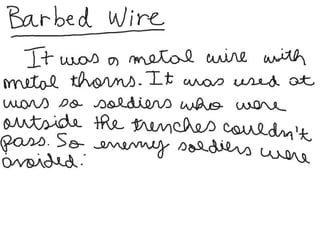 Barbed Wire
It was a metal wire with
metal thorns. It was used at
wars so soldiers who were
outside the trenches couldn't
pass. So enemy soldiers were
avoided.